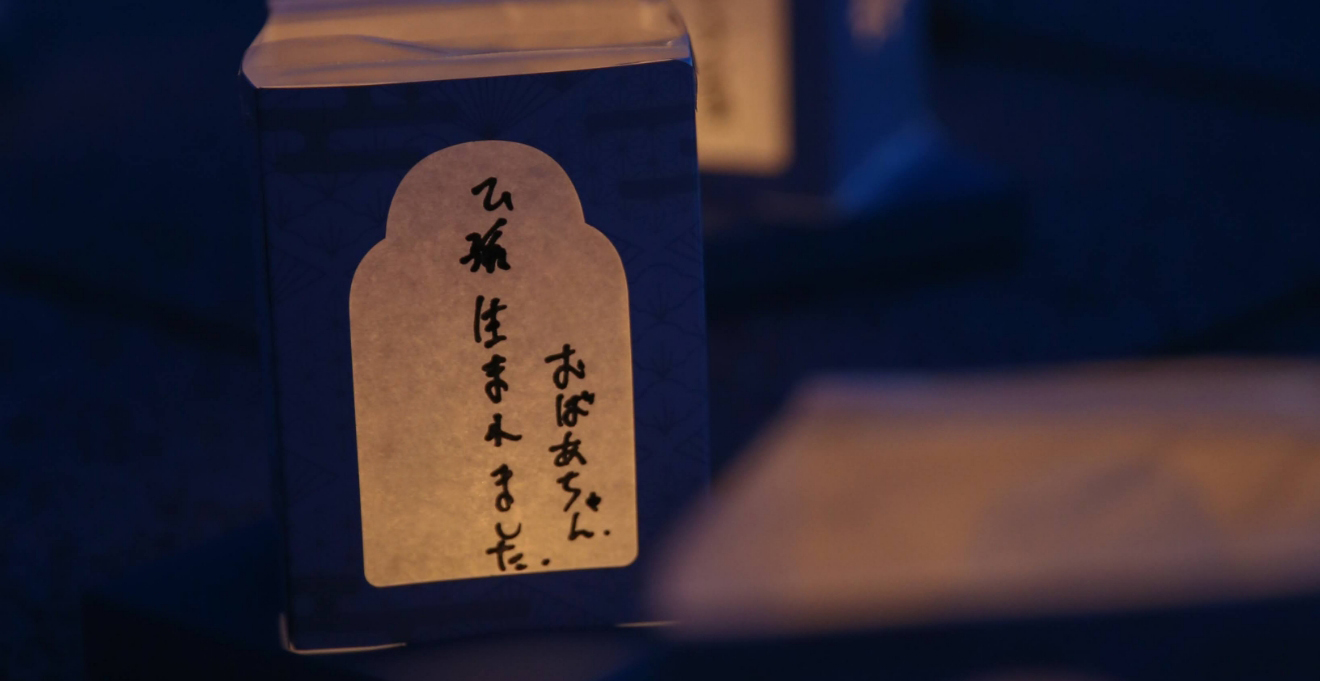 おばあちゃん.
ひ孫生まれました.